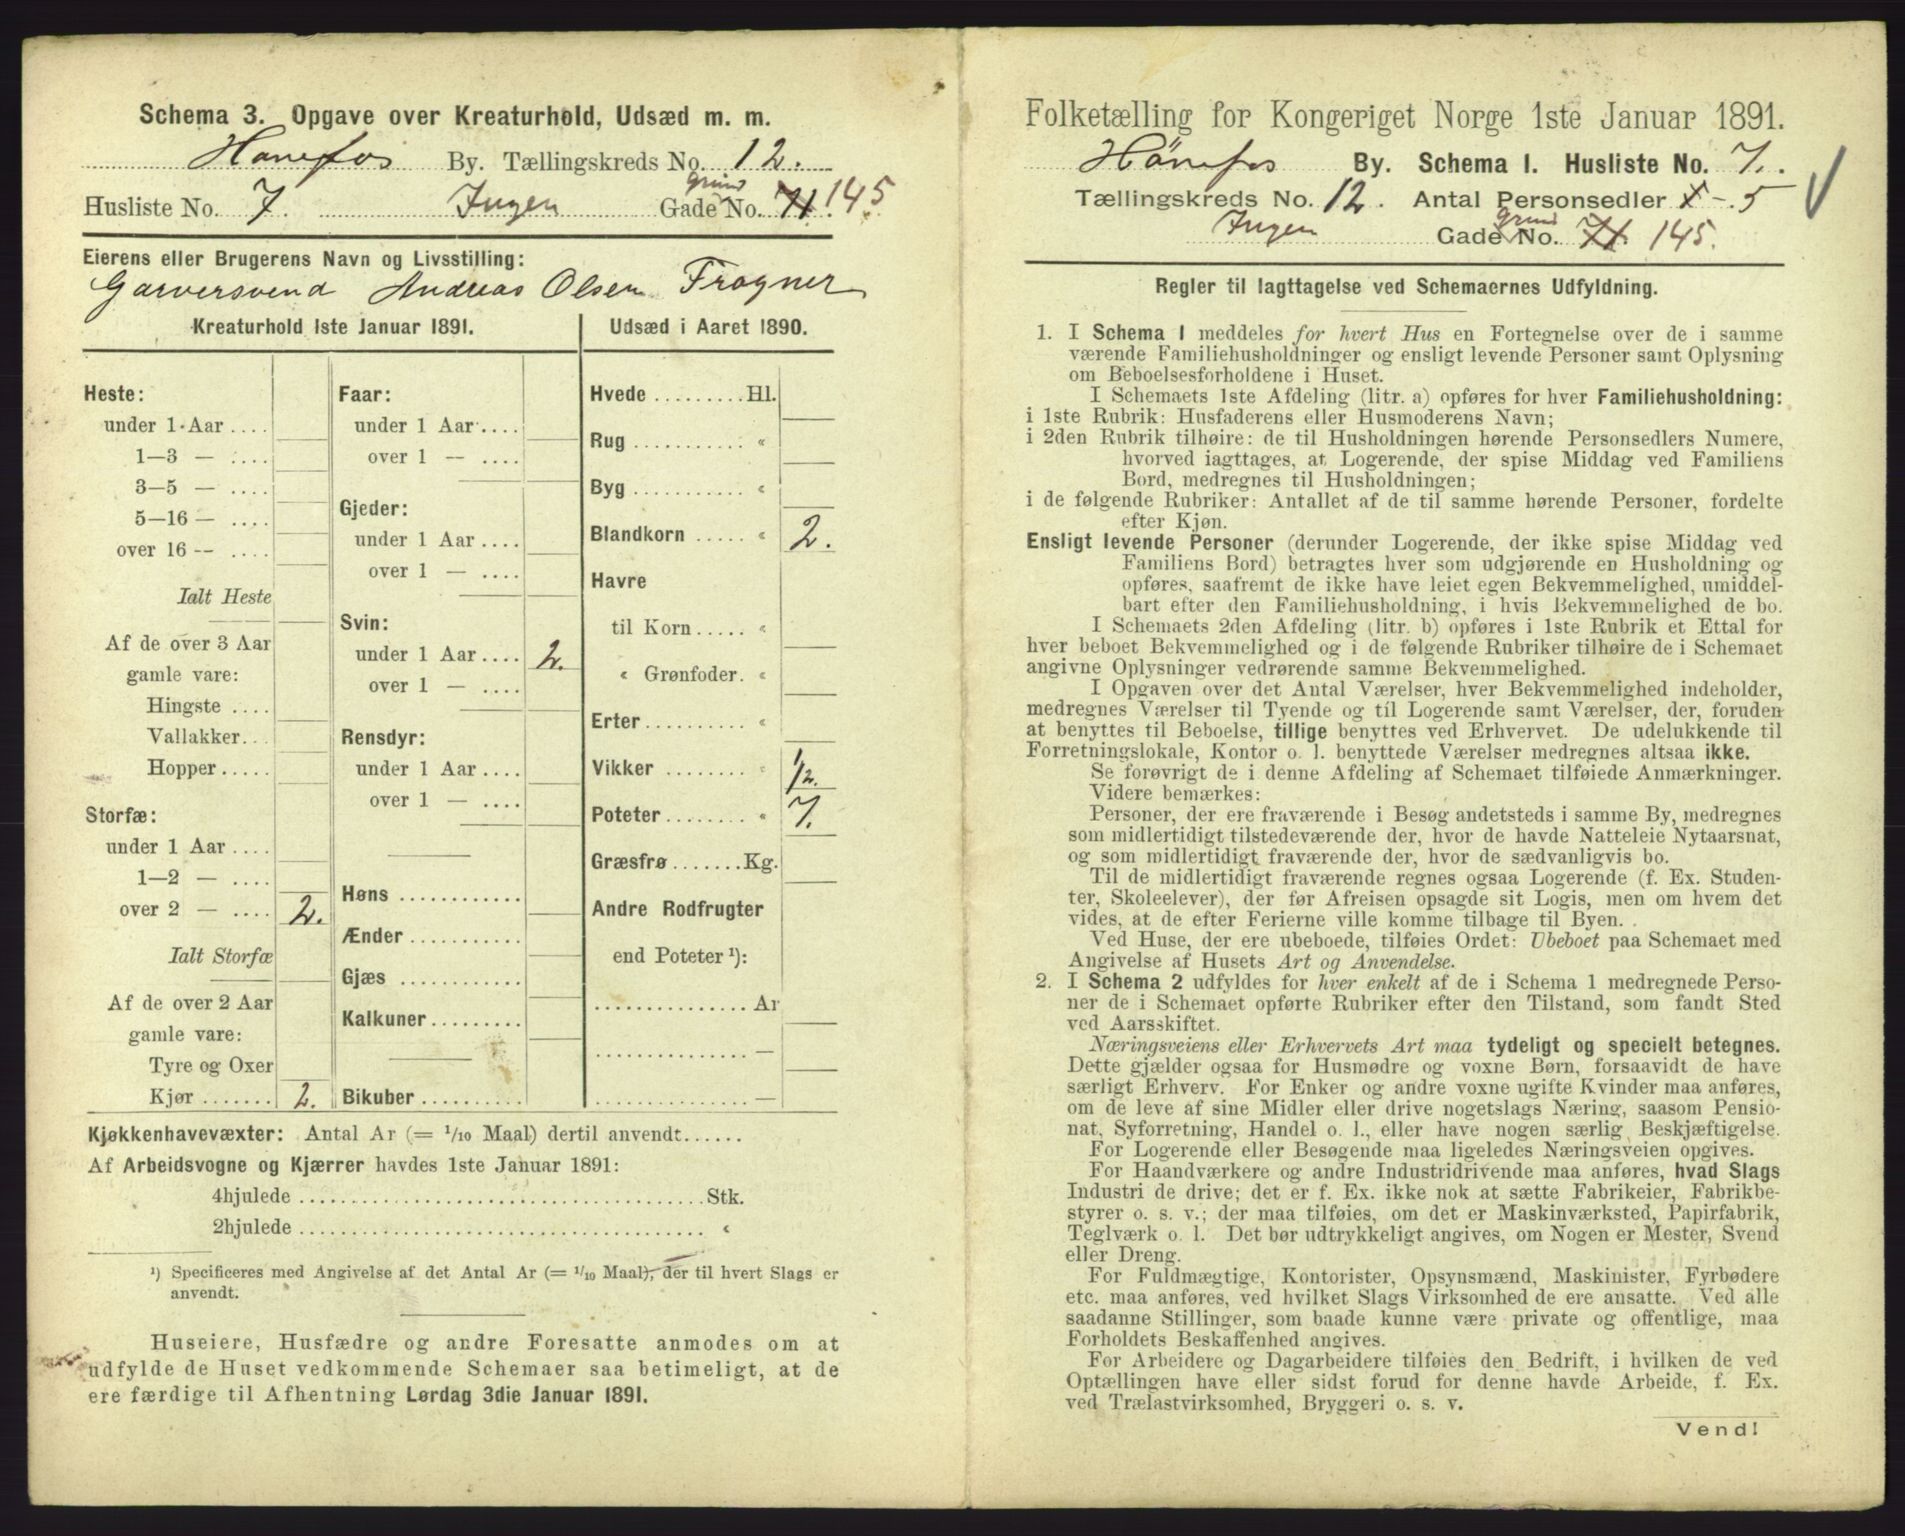 Schema 3. Opgave over Kreaturhold, Udsæd m. m.
Hønefos By. Tællingskreds No. 12.
Husliste No. 7. Ingen Gade grund No. 71. 145.
Eierens eller Brugerens Navn og Livsstilling:
Garversvend Andreas Olsen Frogner
Kreaturhold 1ste Januar 1891.
Heste:
under 1 Aar ....
1—3 — ....
3—5 — ....
5—16 — ....
over 16 — ....
Ialt Heste
Af de over 3 Aar
gamle vare:
Hingste ....
Vallakker...
Hopper .....
Storfæ:
under 1 Aar ....
1—2 — ....
over 2 — .... 2.
Ialt Storfæ
Af de over 2 Aar
gamle vare:
Tyre og Oxer
Kjør ....... 2.
Faar:
under 1 Aar ....
over 1 — ....
Gjeder:
under 1 Aar ....
over 1 — ....
Svin:
under 1 Aar .... 2.
over 1 — ....
Rensdyr:
under 1 Aar ....
over 1 — ....
Høns ............
Ænder ...........
Gjæs ............
Kalkuner.........
Bikuber ..........
Udsæd i Aaret 1890.
Hvede ......... Hl.
Rug ........... "
Byg ........... "
Blandkorn ..... " 2.
Havre
til Korn ..... "
" Grønfoder. "
Erter.......... "
Vikker ........ " 1/2.
Poteter........ " 7.
Græsfrø ....... Kg.
Andre Rodfrugter
end Poteter ¹):
............... Ar
............... —
............... —
Kjøkkenhavevæxter: Antal Ar (= 1/10 Maal) dertil anvendt......
Af Arbeidsvogne og Kjærrer havdes 1ste Januar 1891:
4hjulede ........................................ Stk.
2hjulede ........................................ "
¹) Specificeres med Angivelse af det Antal Ar (= 1/10 Maal), der til hvert Slags er
anvendt.
Huseiere, Husfædre og andre Foresatte anmodes om at
udfylde de Huset vedkommende Schemaer saa betimeligt, at de
ere færdige til Afhentning Lørdag 3die Januar 1891.
Folketælling for Kongeriget Norge 1ste Januar 1891.
Hønefos By. Schema I. Husliste No. 7.
Tællingskreds No. 12. Antal Personsedler 5
Ingen Gade grund No. 71. 145.
Regler til Iagttagelse ved Schemaernes Udfyldning.
1. I Schema I meddeles for hvert Hus en Fortegnelse over de i samme
værende Familiehusholdninger og ensligt levende Personer samt Oplysning
om Beboelsesforholdene i Huset.
I Schemaets 1ste Afdeling (litr. a) opføres for hver Familiehusholdning:
i 1ste Rubrik: Husfaderens eller Husmoderens Navn;
i 2den Rubrik tilhøire: de til Husholdningen hørende Personsedlers Numere,
hvorved iagttages, at Logerende, der spise Middag ved Familiens
Bord, medregnes til Husholdningen;
i de følgende Rubriker: Antallet af de til samme hørende Personer, fordelte
efter Kjøn.
Ensligt levende Personer (derunder Logerende, der ikke spise Middag ved
Familiens Bord) betragtes hver som udgjørende en Husholdning og
opføres, saafremt de ikke have leiet egen Bekvemmelighed, umiddel-
bart efter den Familiehusholdning, i hvis Bekvemmelighed de bo.
I Schemaets 2den Afdeling (litr. b) opføres i 1ste Rubrik et Ettal for
hver beboet Bekvemmelighed og i de følgende Rubriker tilhøire de i Schemaet
angivne Oplysninger vedrørende samme Bekvemmelighed.
I Opgaven over det Antal Værelser, hver Bekvemmelighed indeholder,
medregnes Værelser til Tyende og til Logerende samt Værelser, der, foruden
at benyttes til Beboelse, tillige benyttes ved Erhvervet. De udelukkende til
Forretningslokale, Kontor o. l. benyttede Værelser medregnes altsaa ikke.
Se forøvrigt de i denne Afdeling af Schemaet tilføiede Anmærkninger.
Videre bemærkes:
Personer, der ere fraværende i Besøg andetsteds i samme By, medregnes
som midlertidigt tilstedeværende der, hvor de havde Natteleie Nytaarsnat,
og som midlertidigt fraværende der, hvor de sædvanligvis bo.
Til de midlertidigt fraværende regnes ogsaa Logerende (f. Ex. Studen-
ter, Skoleelever), der før Afreisen opsagde sit Logis, men om hvem det
vides, at de efter Ferierne ville komme tilbage til Byen.
Ved Huse, der ere ubeboede, tilføies Ordet: Ubeboet paa Schemaet med
Angivelse af Husets Art og Anvendelse.
2. I Schema 2 udfyldes for hver enkelt af de i Schema 1 medregnede Perso-
ner de i Schemaet opførte Rubriker efter den Tilstand, som fandt Sted
ved Aarsskiftet.
Næringsveiens eller Erhvervets Art maa tydeligt og specielt betegnes.
Dette gjælder ogsaa for Husmødre og voxne Børn, forsaavidt de have
særligt Erhverv. For Enker og andre voxne ugifte Kvinder maa anføres,
om de leve af sine Midler eller drive nogetslags Næring, saasom Pensio-
nat, Syforretning, Handel o. l., eller have nogen særlig Beskjæftigelse.
For Logerende eller Besøgende maa ligeledes Næringsveien opgives.
For Haandværkere og andre Industridrivende maa anføres, hvad Slags
Industri de drive; det er f. Ex. ikke nok at sætte Fabrikeier, Fabrikbe-
styrer o. s. v.; der maa tilføies, om det er Maskinværksted, Papirfabrik,
Teglværk o. l. Det bør udtrykkeligt angives, om Nogen er Mester, Svend
eller Dreng.
For Fuldmægtige, Kontorister, Opsynsmænd, Maskinister, Fyrbødere
etc. maa anføres, ved hvilket Slags Virksomhed de ere ansatte. Ved alle
saadanne Stillinger, som baade kunne være private og offentlige, maa
Forholdets Beskaffenhed angives.
For Arbeidere og Dagarbeidere tilføies den Bedrift, i hvilken de ved
Optællingen have eller sidst forud for denne havde Arbeide, f. Ex.
ved Trælastvirksomhed, Bryggeri o. s. v.
Vend!